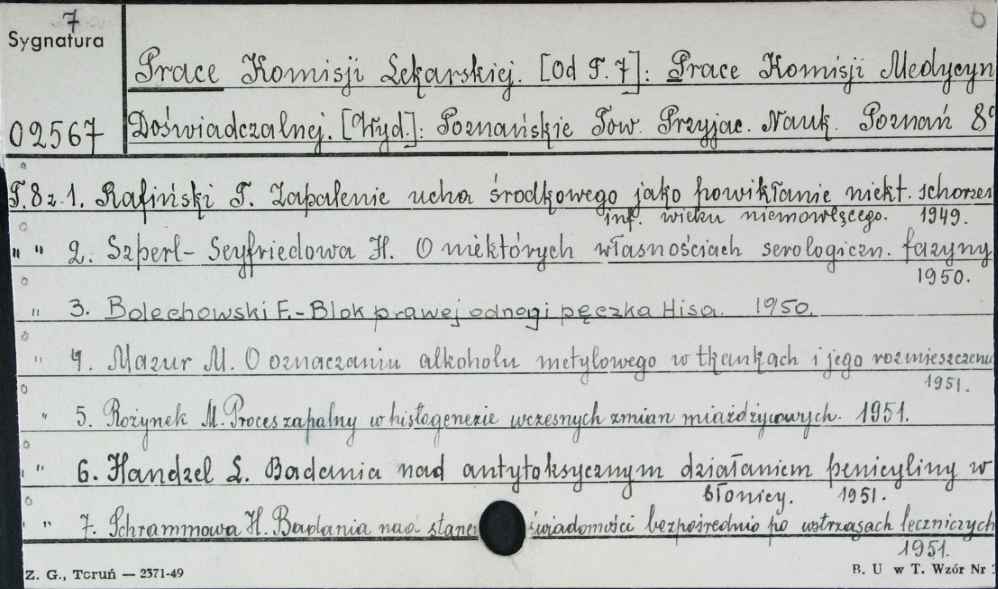 7
Sygnatura
02567
Prace Komisji Lekarskiej. [Od T. 7]: Prace Komisji Medycyn
Doświadczalnej. [Wyd.]: Poznańskie Tow. Przyjac. Nauk. Poznań 8°
T. 8 z. 1. Rafiński T. Zapalenie ucha środkowego jako powikłanie niekt. schorzeń
inf. wieku niemowlęcego. 1949.
" " 2. Szperl-Seyfriedowa H. O niektórych własnościach serologiczn. fazyny
1950.
" 3. Bolechowski F. - Blok prawej odnogi pęczka Hisa. 1950.
" 4. Mazur M. O oznaczaniu alkoholu metylowego w tkankach i jego rozmieszczeniu
1951.
" 5. Rożynek M. Proces zapalny w histogenezie wczesnych zmian miażdżycowych. 1951.
" 6. Handzel L. Badania nad antytoksycznym działaniem penicyliny w
błonicy. 1951.
" 7. Schrammowa H. Badania nad stanem świadomości bezpośrednio po wstrząsach leczniczych
1951.
Z. G., Toruń — 2371-49
B. U w T. Wzór Nr